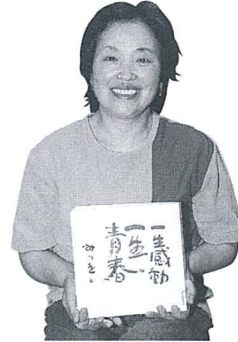 一生感動
一生青春
みつを